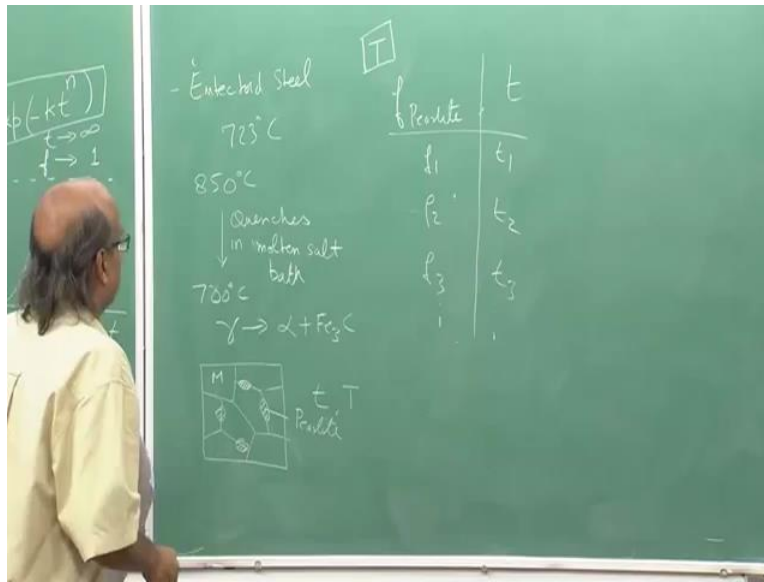 xp(-kt^n)
t → ∞
f → 1
- Eutectoid Steel
723°C
850°C
↓ Quenches
in molten salt
bath
700°C
γ → α + Fe₃C
M
t T
Pearlite
T
f Pearlite t
f₁ t₁
f₂ t₂
f₃ t₃